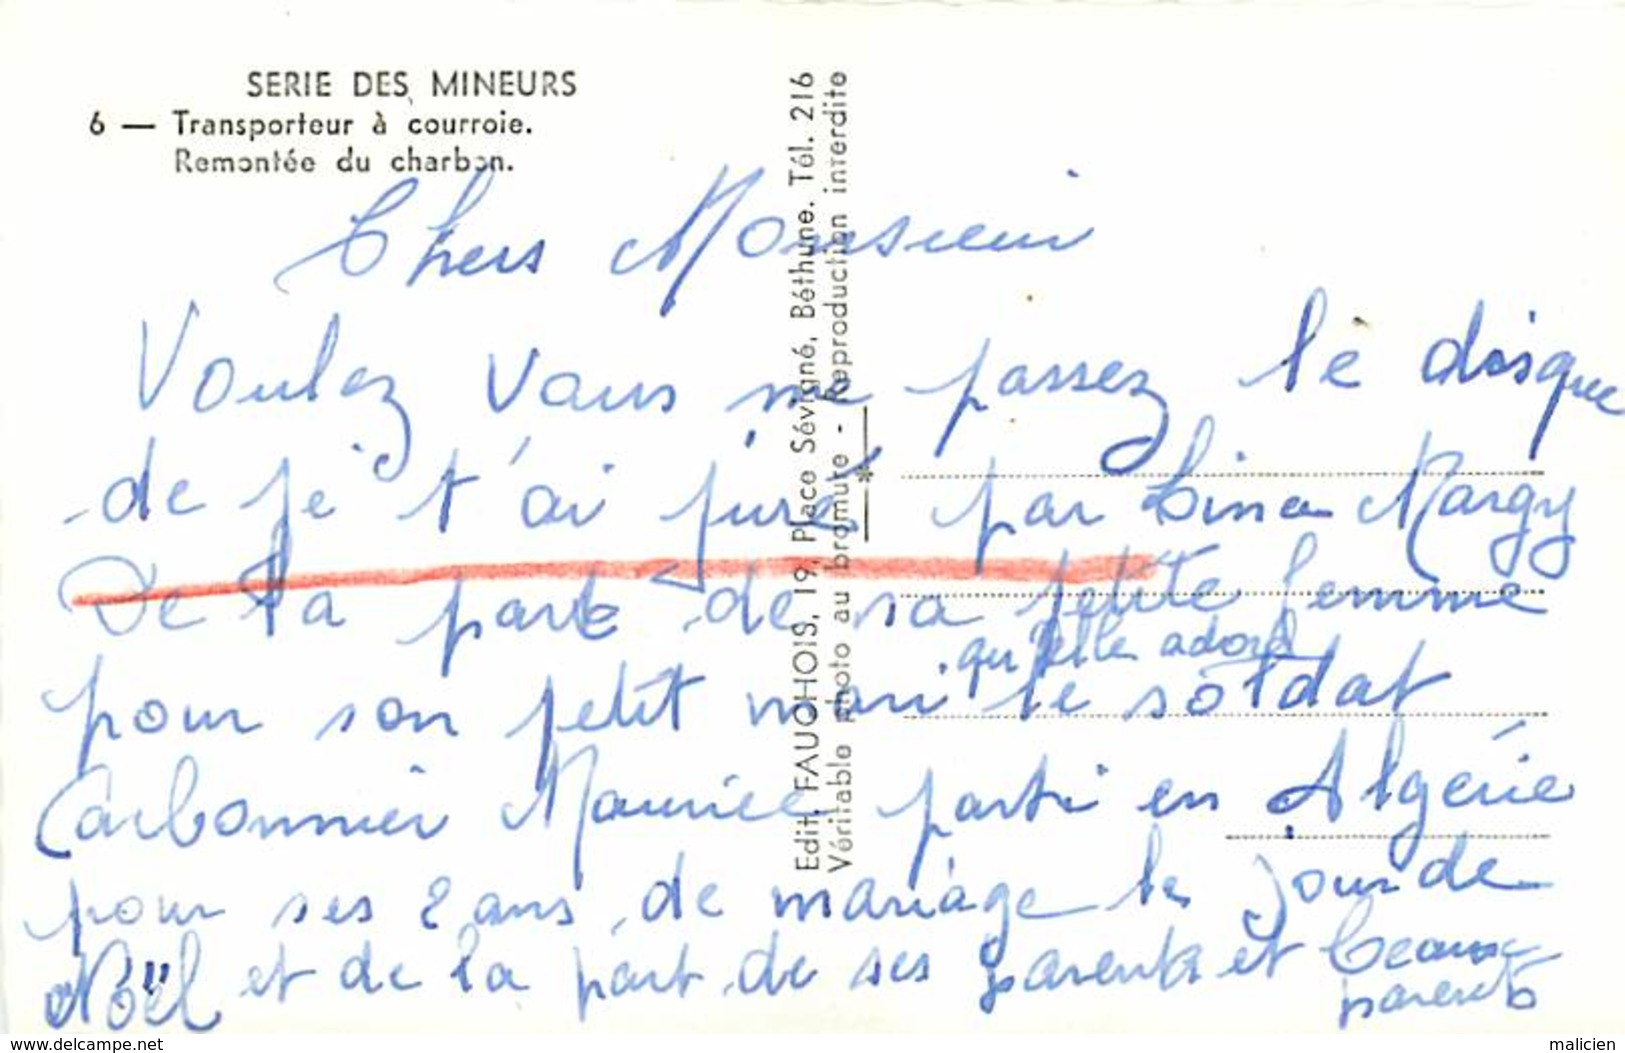 SERIE DES MINEURS
6 — Transporteur à courroie.
Remontée du charbon.
Edit. FAUCHOIS, 19, Place Sévigné, Béthune. Tél. 216
Véritable photo au bromure - Reproduction interdite
Chers Monsieur
Voulez vous me passez le disque
de je t'ai juré par Lina Margy
De la part de sa petite femme
qu'elle adord
pour son petit mari le soldat
Carbonnier Maurice parti en Algérie
pour ses 2 ans de mariage le jour de
Noël et de la part de ses parents et beaux
parents
www.delcampe.net
malicien